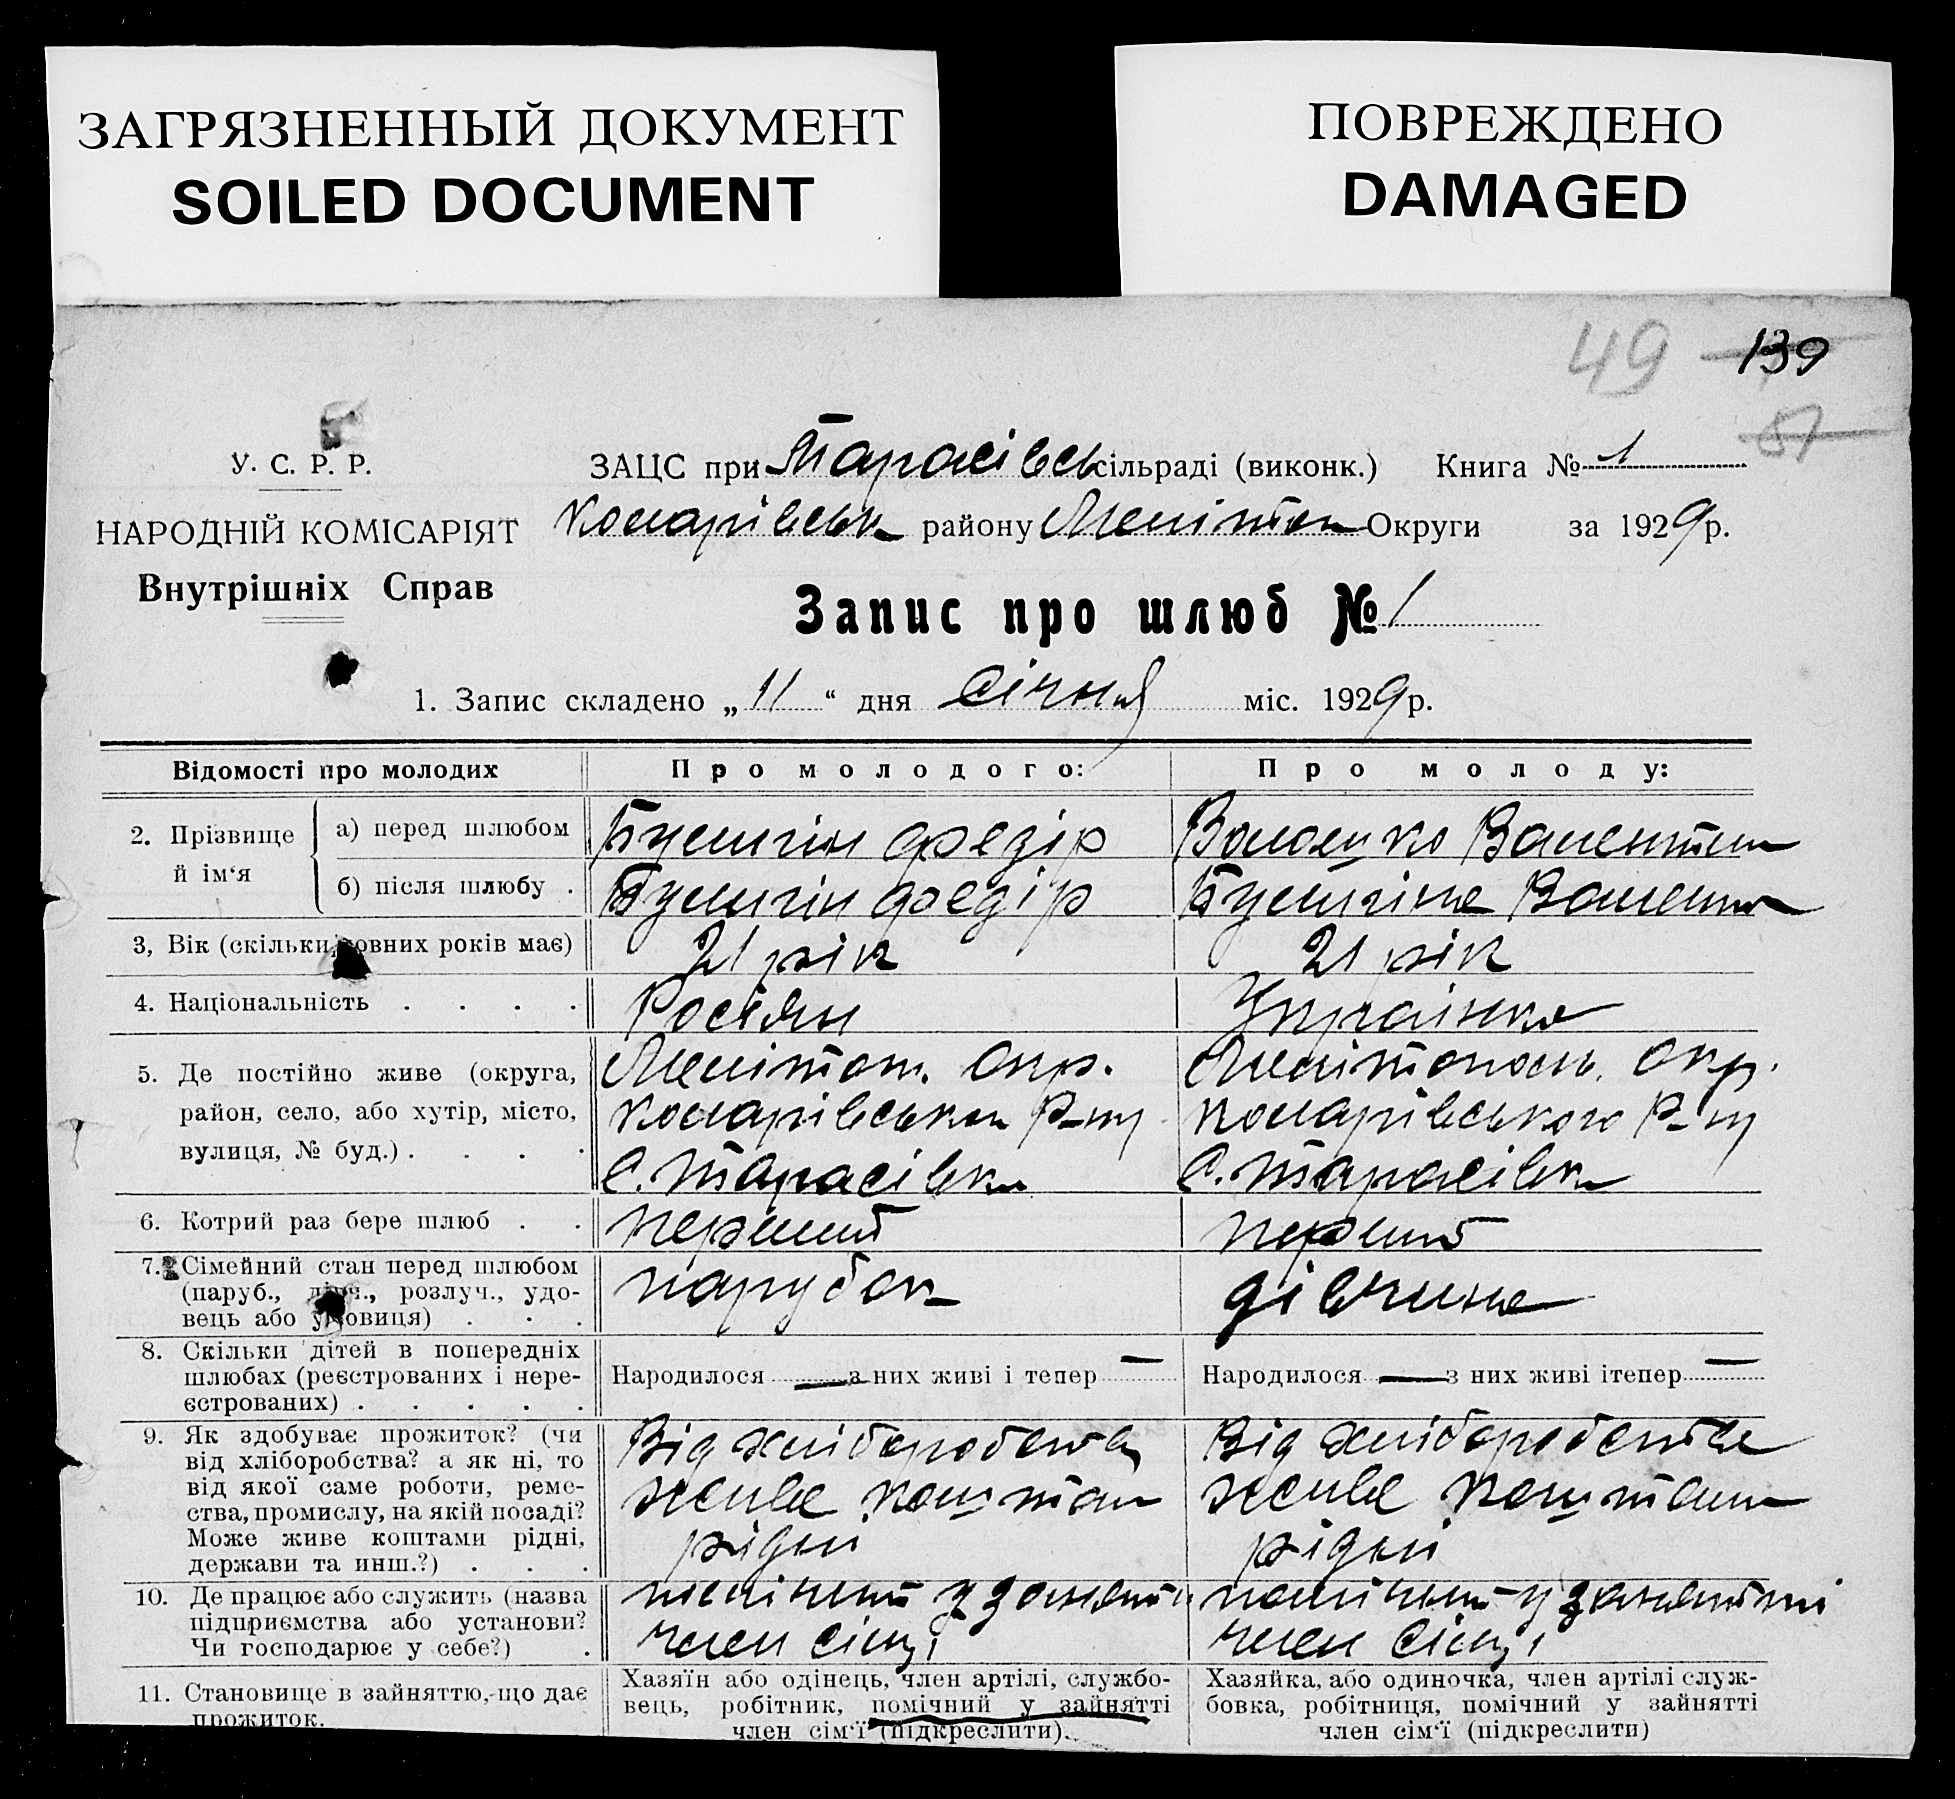 ЗАГРЯЗНЕННЫЙ ДОКУМЕНТ
SOILED DOCUMENT
ПОВРЕЖДЕНО
DAMAGED
49 139
51
У. С. Р. Р.
НАРОДНІЙ КОМІСАРІЯТ
Внутрішніх Справ
ЗАЦС при Тарасівсь сільраді (виконк.) Книга № 1
району Округи за 1929 р.
Запис про шлюб № 1
1. Запис складено „ 11 “ дня січня міс. 1929 р.
Відомості про молодих Про молодого: Про молоду:
2. Прізвище й ім‘я а) перед шлюбом Федір
б) після шлюбу . Федір
3, Вік (скільки повних років має) 21 рік 21 рік
4. Національність . . . . Росіян Українка
5. Де постійно живе (округа, Мелітоп. Окр. Мелітополь. Окр.
район, село, або хутір, місто, Р-ну Р-ну
вулиця, № буд.) . . . . С. Тарасівка С. Тарасівка
6. Котрий раз бере шлюб . . перший перший
7. Сімейний стан перед шлюбом парубок дівчина
(паруб., дівч., розлуч., удо-
вець або удовиця) . . .
8. Скільки дітей в попередніх
шлюбах (реєстрованих і нере- Народилося — з них живі і тепер — Народилося — з них живі ітепер —
єстрованих) . . . . .
9. Як здобуває прожиток? (чи Від хліборобства Від хліборобства
від хліборобства? а як ні, то
від якої саме роботи, реме- живе коштам живе коштами
ства, промислу, на якій посаді?
Може живе коштами рідні, рідні рідні
держави та инш.?) . . .
10. Де працює або служить (назва помічний у занятті помічний у занятті
підприємства або установи?
Чи господарює у себе?) . член сімї член сімї
11. Становище в зайняттю, що дає
прожиток.
Хазяїн або одінець, член артілі, службо-
вець, робітник, помічний у зайнятті
член сім‘ї (підкреслити).
Хазяйка, або одиночка, член артілі служ-
бовка, робітниця, помічний у зайнятті
член сім‘ї (підкреслити)